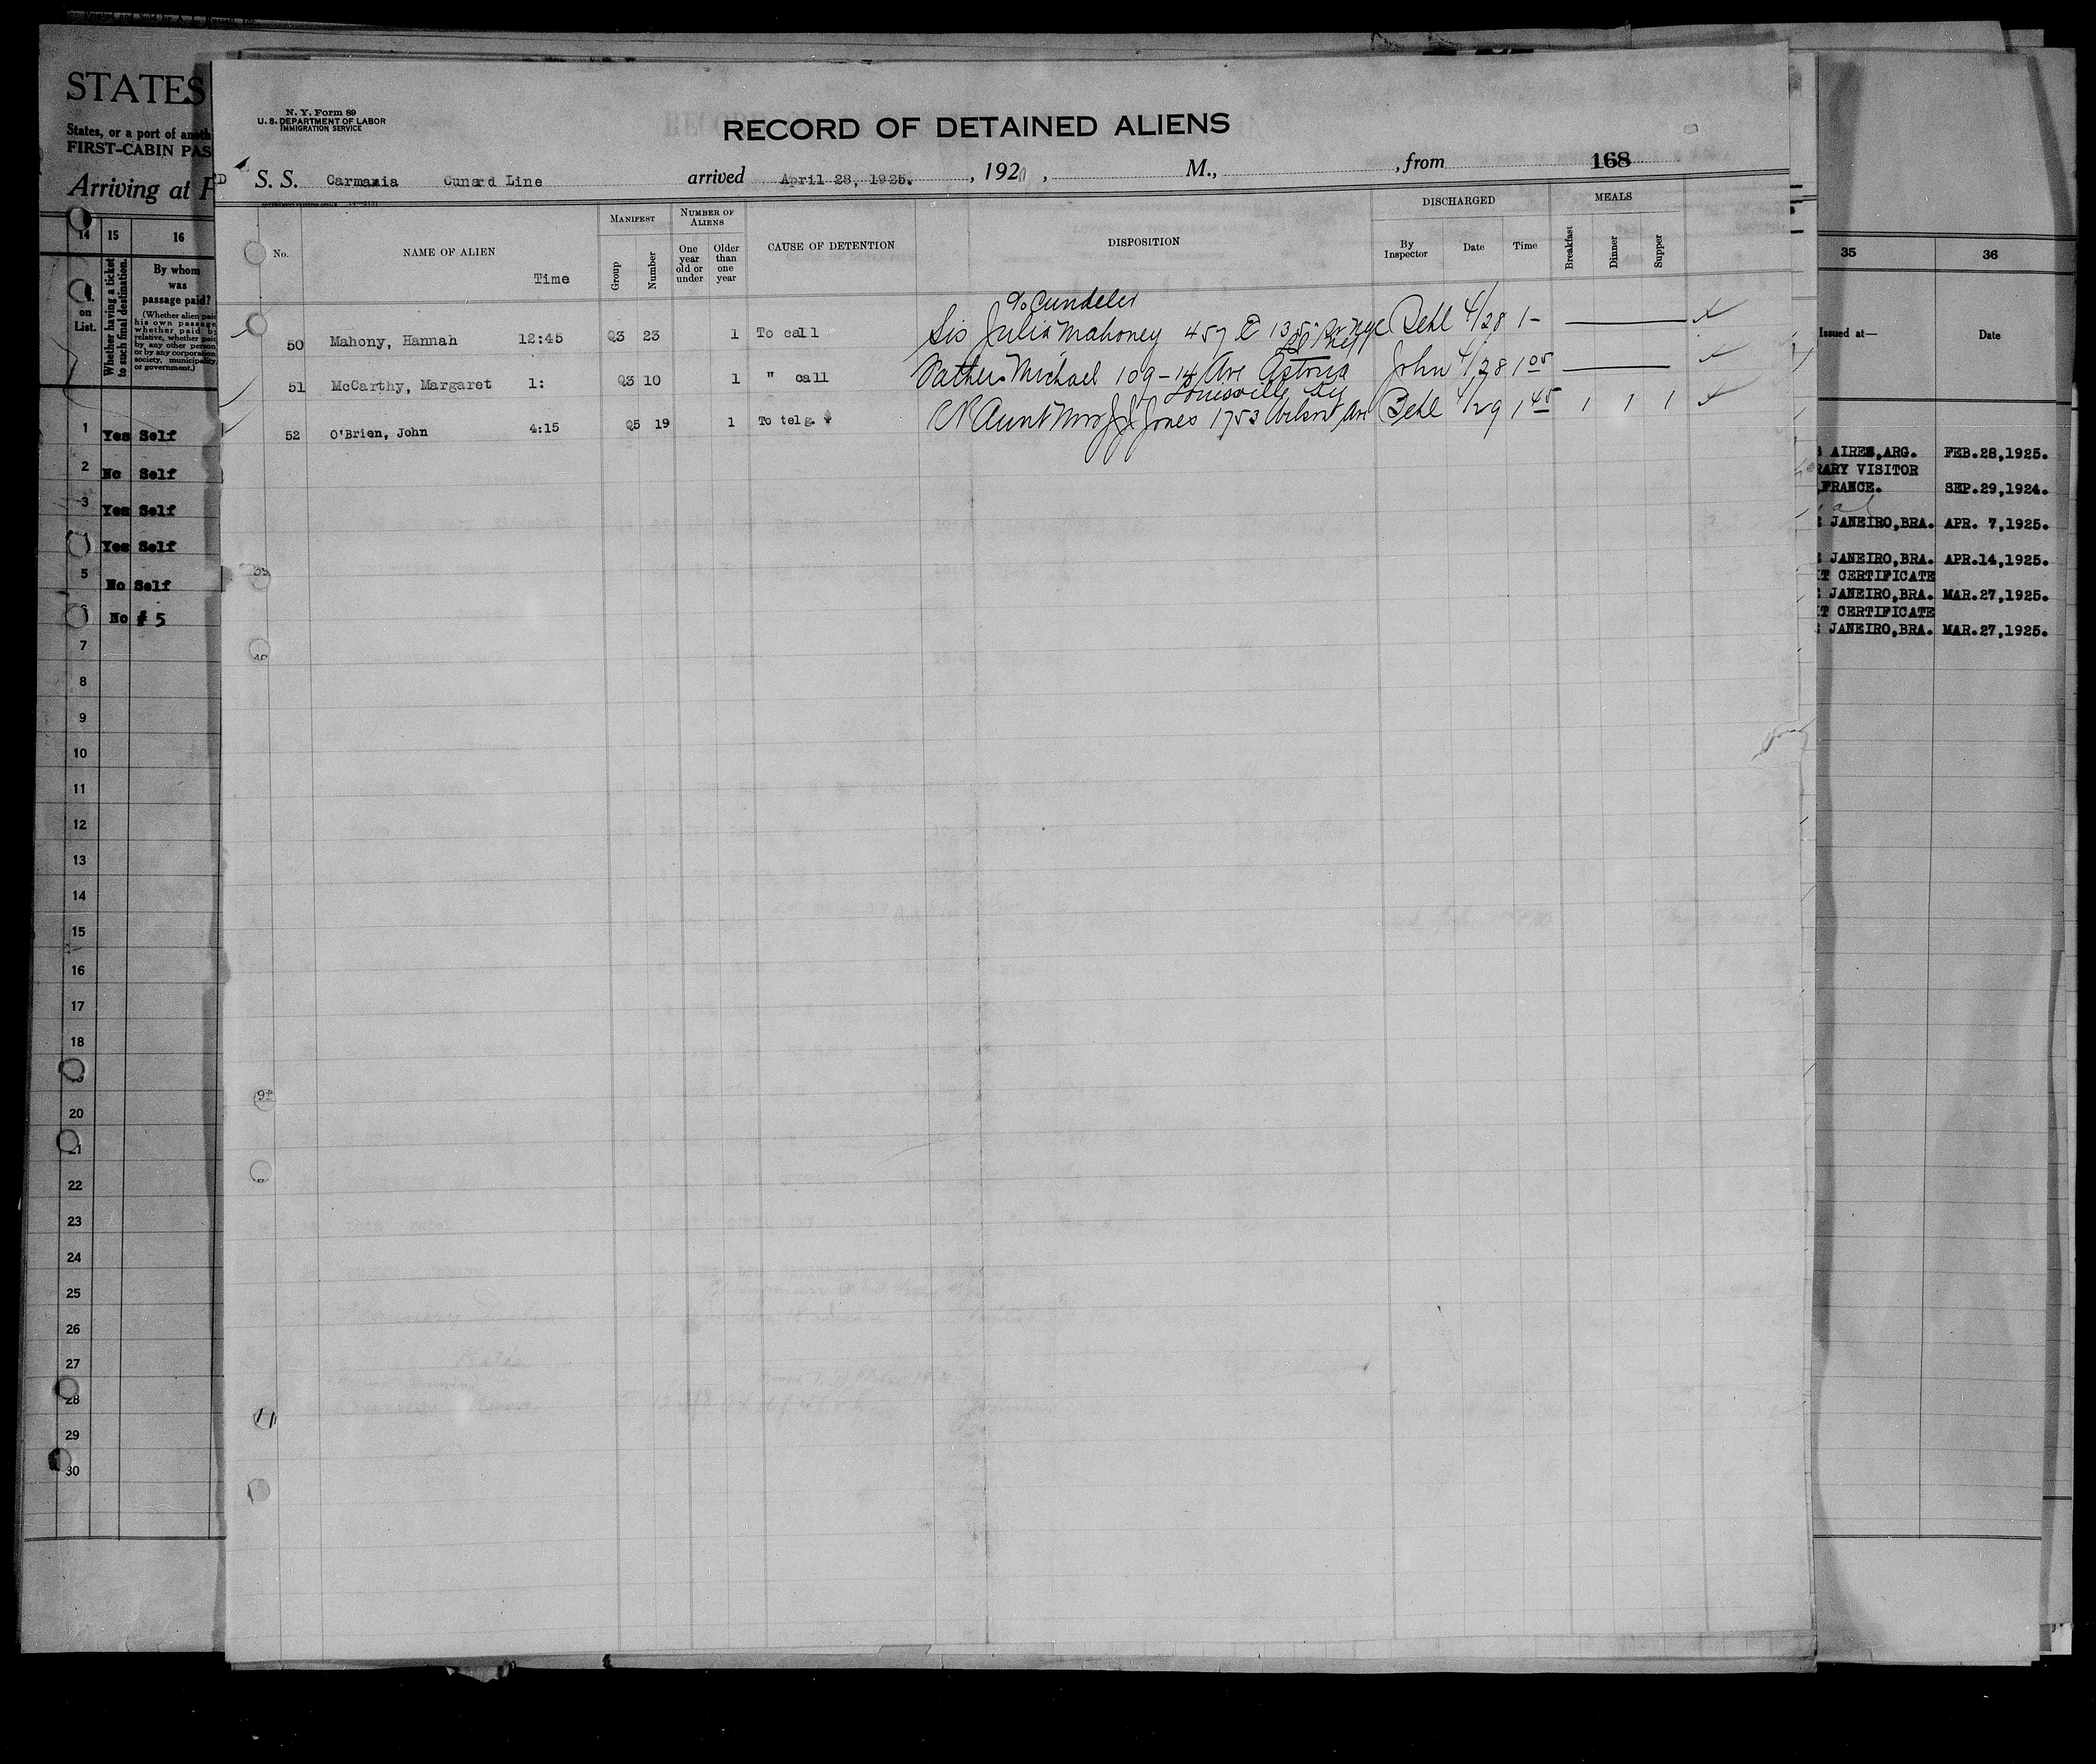 STATES
States, or a port of anoth
FIRST-CABIN PAS
Arriving at P
14 15 16
on List.
Whether having a ticket to such final destination.
By whom
was
passage paid?
(Whether alien paid
his own passage,
whether paid by
relative, whether paid
by any other person,
or by any corporation,
society, municipality,
or government.)
1 Yes Self
2 No Self
3 Yes Self
Yes Self
5 No Self
No # 5
7
8
9
10
11
12
13
14
15
16
17
18
20
21
22
23
24
25
26
27
28
29
30
N. Y. Form 89
U. S. DEPARTMENT OF LABOR
IMMIGRATION SERVICE
RECORD OF DETAINED ALIENS
168
S. S. Carmania Cunard Line arrived April 28, 1925. , 192 , M., , from
No. NAME OF ALIEN Time
MANIFEST Group Number
NUMBER OF ALIENS One year old or under Older than one year
CAUSE OF DETENTION
DISPOSITION
DISCHARGED By Inspector Date Time
MEALS Breakfast Dinner Supper
c/o Cundeler
50 Mahony, Hannah 12:45 Q3 23 1 To call Sis Julia Mahoney 457 E 135 4/28 1-
51 McCarthy, Margaret 1: Q3 10 1 " call Father Michael 109-14 Ave Astoria John 4/28 1 05
Louisville Ky
52 O'Brien, John 4:15 Q5 19 1 To telg. Aunt Mrs J J Jones 1753 Ave 4/29 1 45 1 1 1
35 36
Issued at— Date
AIRES,ARG. FEB.28,1925.
RARY VISITOR
,FRANCE. SEP.29,1924.
JANEIRO,BRA. APR. 7,1925.
JANEIRO,BRA. APR.14,1925.
IT CERTIFICATE
JANEIRO,BRA. MAR.27,1925.
IT CERTIFICATE
JANEIRO,BRA. MAR.27,1925.